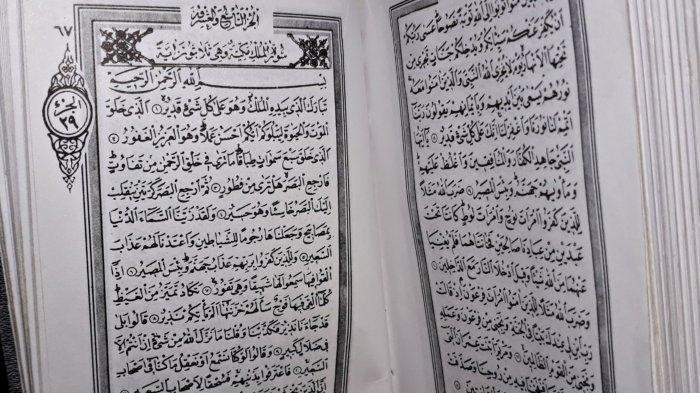 اٰمَنُوا تُوبُوا اِلَى اللّٰهِ تَوْبَةً نَصُوحًا عَسٰى رَبُّكُمْ
اَنْ يُكَفِّرَ عَنْكُمْ سَيِّئَاتِكُمْ وَيُدْخِلَكُمْ جَنَّاتٍ تَجْرِي مِنْ
تَحْتِهَا الْاَنْهَارُ يَوْمَ لَا يُخْزِي اللّٰهُ النَّبِيَّ وَالَّذِينَ اٰمَنُوا مَعَهُ
نُورُهُمْ يَسْعٰى بَيْنَ اَيْدِيهِمْ وَبِاَيْمَانِهِمْ يَقُولُونَ رَبَّنَا
اَتْمِمْ لَنَا نُورَنَا وَاغْفِرْ لَنَا اِنَّكَ عَلٰى كُلِّ شَيْءٍ قَدِيرٌ يَا اَيُّهَا
النَّبِيُّ جَاهِدِ الْكُفَّارَ وَالْمُنَافِقِينَ وَاغْلُظْ عَلَيْهِمْ
وَمَأْوٰيهُمْ جَهَنَّمُ وَبِئْسَ الْمَصِيرُ ضَرَبَ اللّٰهُ مَثَلًا
لِلَّذِينَ كَفَرُوا امْرَاَتَ نُوحٍ وَامْرَاَتَ لُوطٍ كَانَتَا تَحْتَ
عَبْدَيْنِ مِنْ عِبَادِنَا صَالِحَيْنِ فَخَانَتَاهُمَا فَلَمْ يُغْنِيَا
عَنْهُمَا مِنَ اللّٰهِ شَيْئًا وَقِيلَ ادْخُلَا النَّارَ مَعَ الدَّاخِلِينَ
وَضَرَبَ اللّٰهُ مَثَلًا لِلَّذِينَ اٰمَنُوا امْرَاَتَ فِرْعَوْنَ اِذْ قَالَتْ
رَبِّ ابْنِ لِي عِنْدَكَ بَيْتًا فِي الْجَنَّةِ وَنَجِّنِي مِنْ فِرْعَوْنَ وَعَمَلِهِ
وَنَجِّنِي مِنَ الْقَوْمِ الظَّالِمِينَ وَمَرْيَمَ ابْنَتَ عِمْرَانَ الَّتِي
فِيهِ مِنْ رُوحِنَا وَصَدَّقَتْ
الجزء التاسع والعشرون
٦٧
سورة الملك مكية وهي ثلاثون اية
الجزء
٢٩
بِسْمِ اللّٰهِ الرَّحْمٰنِ الرَّحِيمِ
تَبَارَكَ الَّذِي بِيَدِهِ الْمُلْكُ وَهُوَ عَلٰى كُلِّ شَيْءٍ قَدِيرٌ ١ الَّذِي خَلَقَ
الْمَوْتَ وَالْحَيٰوةَ لِيَبْلُوَكُمْ اَيُّكُمْ اَحْسَنُ عَمَلًا وَهُوَ الْعَزِيزُ الْغَفُورُ ٢
الَّذِي خَلَقَ سَبْعَ سَمٰوَاتٍ طِبَاقًا مَا تَرٰى فِي خَلْقِ الرَّحْمٰنِ مِنْ تَفَاوُتٍ
فَارْجِعِ الْبَصَرَ هَلْ تَرٰى مِنْ فُطُورٍ ٣ ثُمَّ ارْجِعِ الْبَصَرَ كَرَّتَيْنِ يَنْقَلِبْ
اِلَيْكَ الْبَصَرُ خَاسِئًا وَهُوَ حَسِيرٌ ٤ وَلَقَدْ زَيَّنَّا السَّمَاءَ الدُّنْيَا
بِمَصَابِيحَ وَجَعَلْنَاهَا رُجُومًا لِلشَّيَاطِينِ وَاَعْتَدْنَا لَهُمْ عَذَابَ
السَّعِيرِ ٥ وَلِلَّذِينَ كَفَرُوا بِرَبِّهِمْ عَذَابُ جَهَنَّمَ وَبِئْسَ الْمَصِيرُ ٦ اِذَا
اُلْقُوا فِيهَا سَمِعُوا لَهَا شَهِيقًا وَهِيَ تَفُورُ ٧ تَكَادُ تَمَيَّزُ مِنَ الْغَيْظِ
كُلَّمَا اُلْقِيَ فِيهَا فَوْجٌ سَاَلَهُمْ خَزَنَتُهَا اَلَمْ يَأْتِكُمْ نَذِيرٌ ٨ قَالُوا بَلٰى
قَدْ جَاءَنَا نَذِيرٌ فَكَذَّبْنَا وَقُلْنَا مَا نَزَّلَ اللّٰهُ مِنْ شَيْءٍ اِنْ اَنْتُمْ اِلَّا
فِي ضَلَالٍ كَبِيرٍ ٩ وَقَالُوا لَوْ كُنَّا نَسْمَعُ اَوْ نَعْقِلُ مَا كُنَّا فِي اَصْحَابِ
السَّعِيرِ ١٠ فَاعْتَرَفُوا بِذَنْبِهِمْ فَسُحْقًا لِاَصْحَابِ السَّعِيرِ